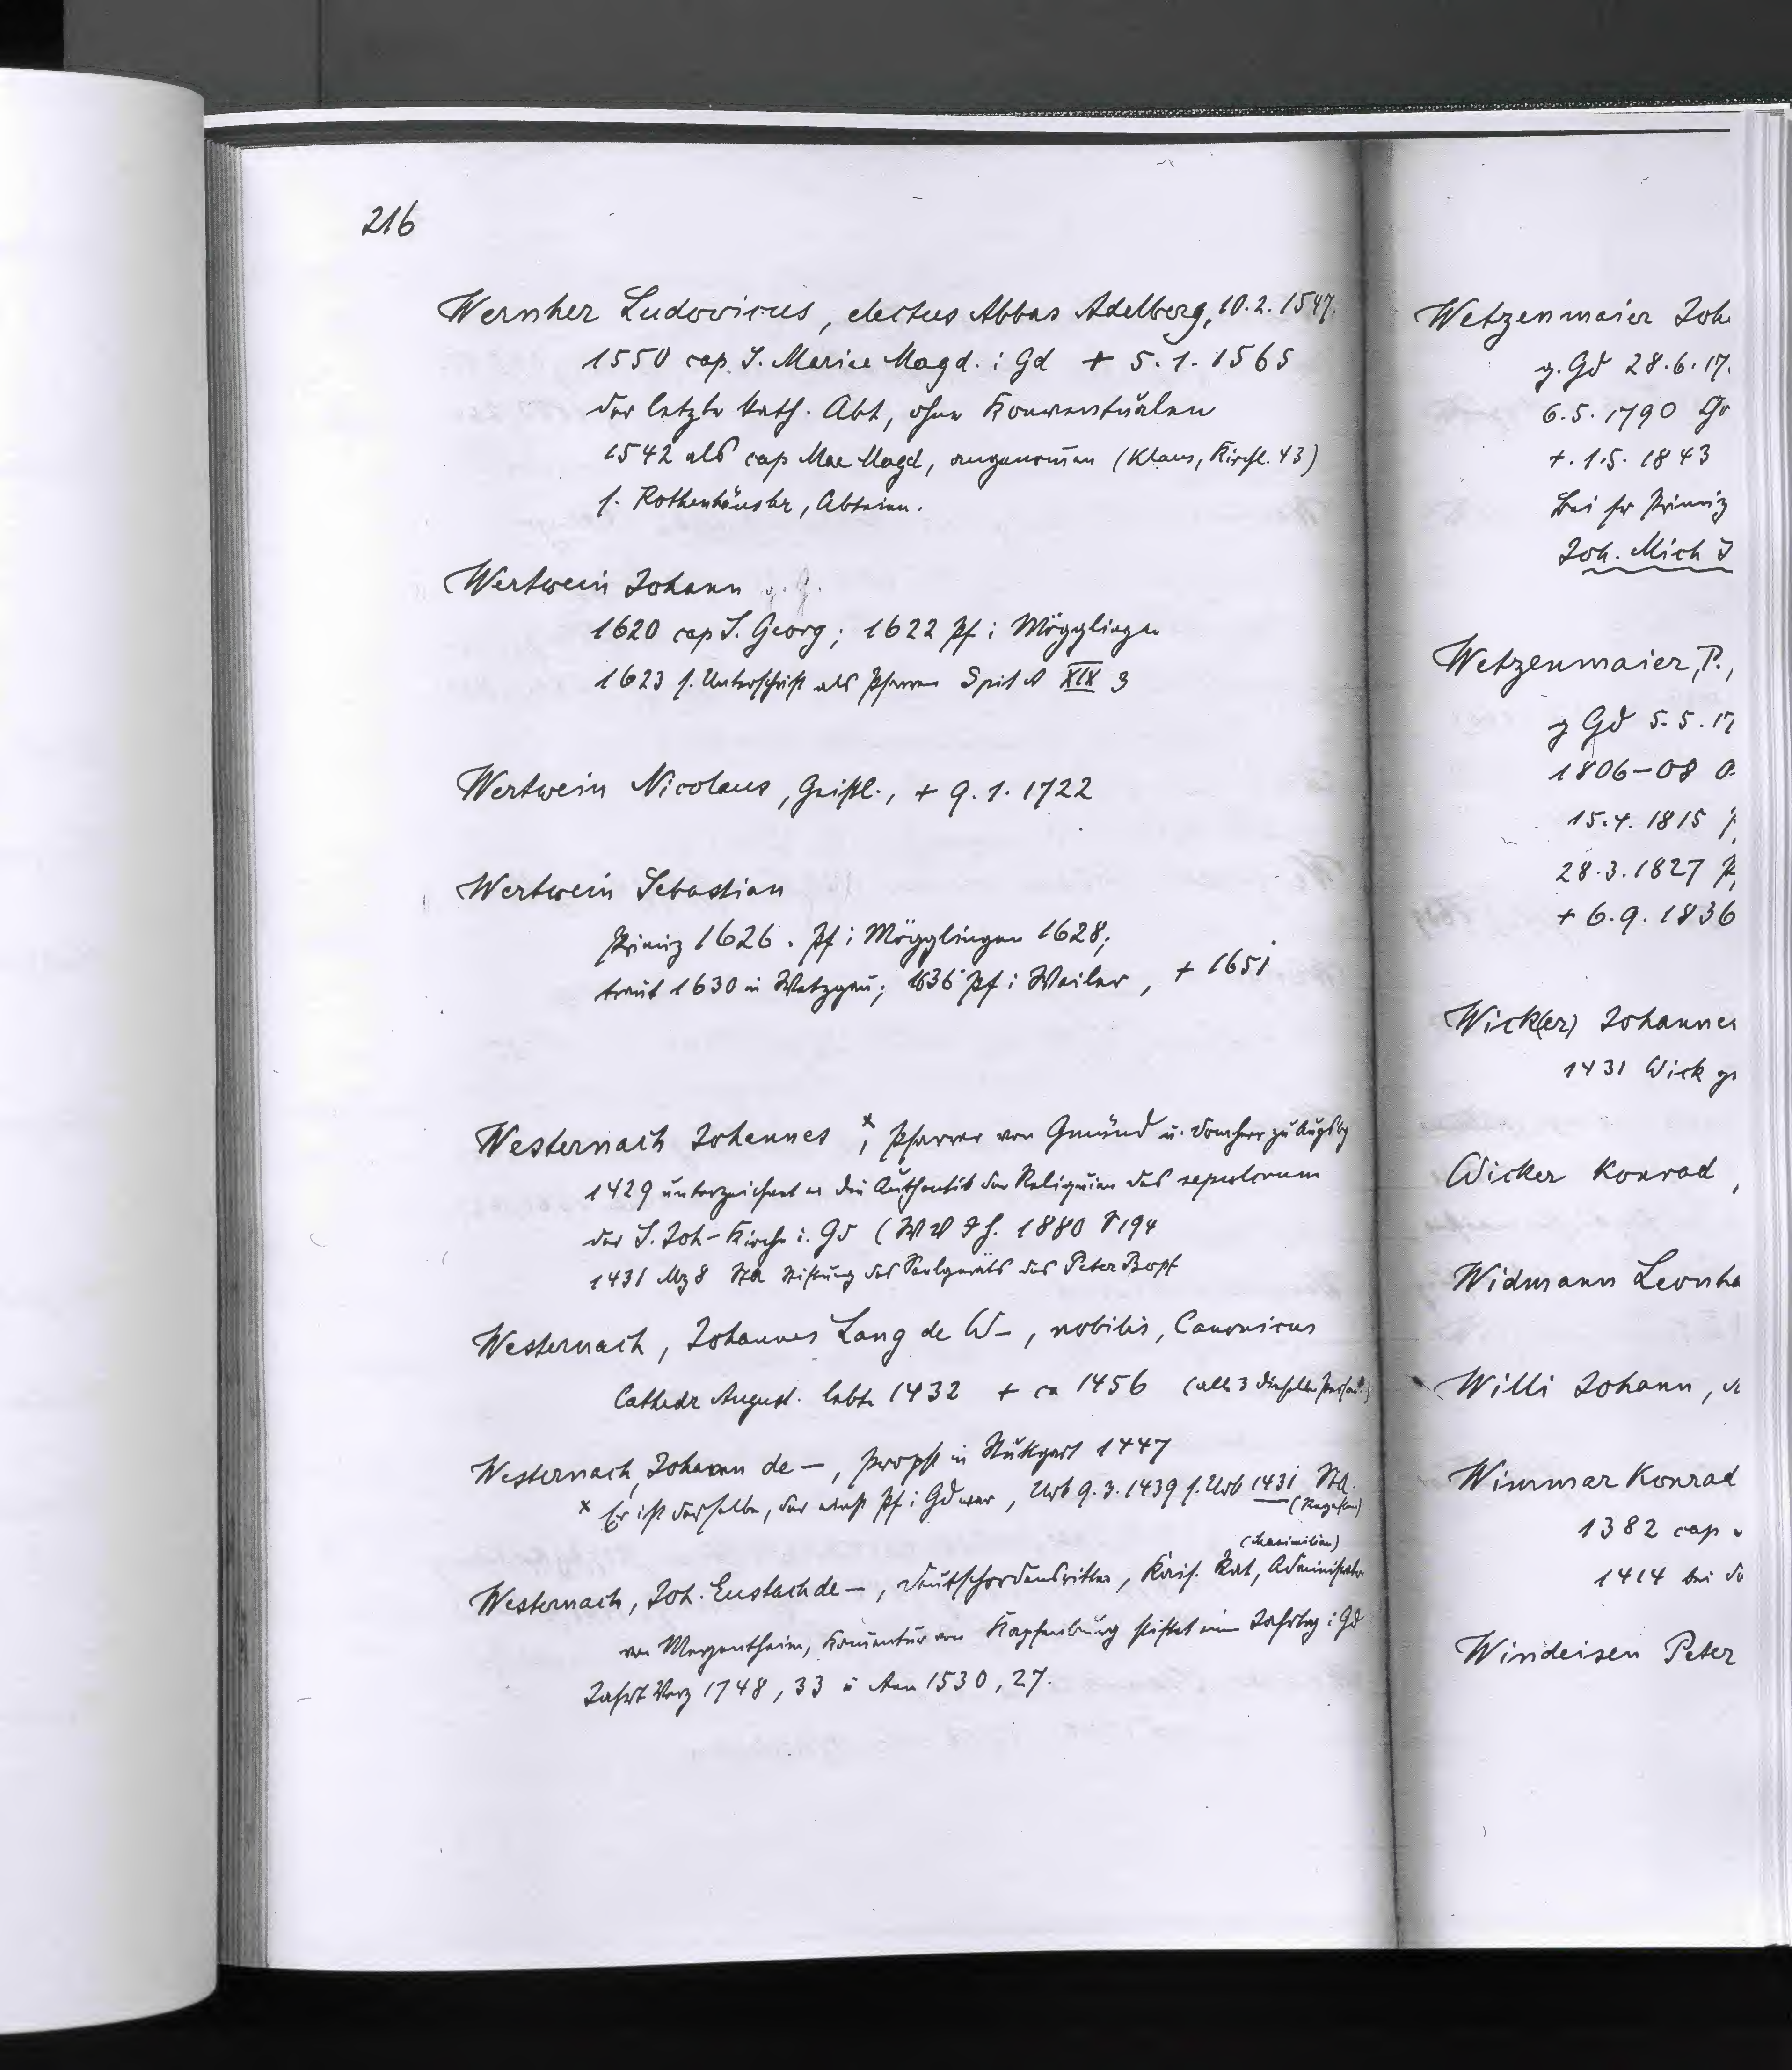 216
Wernher Ludovicus, electus Abbas Adelberg, 10.2.1547.
1550 cap. S. Mariae Magd. i Gd + 5.1.1565
der letzte kath. Abt, ohne Konventualen
1542 als cap Mae Magd, angenom̄en (Klaus, Kirchl. 43)
s. Rothenhäusler, Abteien.
Wertwein Johann g. G.
1620 cap S. Georg; 1622 Pf i Mögglingen
1623 s. Unterschrift als Pfarrer Spit A XIX 3
Wertwein Nicolaus, Geistl., + 9.1.1722
Wertwein Sebastian
Primiz 1626. Pf i Mögglingen 1628;
traut 1630 in Wetzgau; 1636 Pf i Weiler, + 1651
Westernach Johannes x, Pfarrer von Gmünd u. Domherr zu Augsbg
1429 unterzeichnet er die Authentik der Reliquien des sepulcrum
der S. Joh-Kirche i. Gd (W V J H. 1880 S 194
1431 Mz 8 StA Stiftung des Seelgeräts des Peter Bopf
Westernach, Johannes Lang de W–, nobilis, Canonicus
Cathedr August. lebte 1432 + ca 1456 (alle 3 dieselbe Person?)
Westernach, Johann de –, Propst in Stuttgart 1447
x Er ist derselbe, der einst Pf i Gd war, Urb 9.3.1439 s. Urb 1431 StA.
(Regesten)
(Maximilian)
Westernach, Joh. Eustach de –, Deutschordensritter, Kais. Rat, Administrator
von Mergentheim, Komentur von Kapfenburg stiftet einen Jahrtag i Gd
Jahrt Verz 1748, 33 u Ann 1530, 27.
Wetzenmaier Joh
g. Gd 28.6.17.
6.5.1790
+ .1.5. 1843
Bei sr Primiz
Joh. Mich
Wetzenmaier, P.,
g Gd 5.5.17
1806–08
15.4.1815
28.3.1827
+ 6.9.1836
Wick(er) Johannes
1431 Wick
Wicker Konrad,
Widmann Leonha
Willi Johann,
Wimmar Konrad
1382 cap
1414 bei
Windeisen Peter